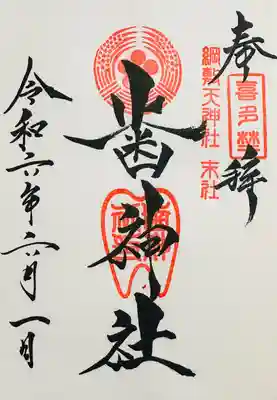 奉拝
喜多埜
綱敷天神社 末社
歯神社
令和六年六月一日